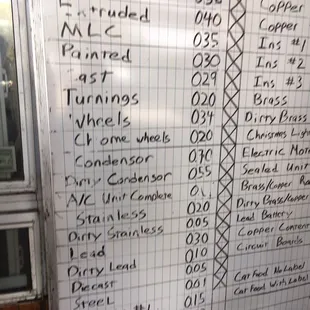 Extruded 040
MLC 035
Painted 030
Cast 029
Turnings 020
Wheels 034
Chrome wheels 020
Condensor 070
Dirty Condensor 055
A/C Unit Complete
Stainless 020
Dirty Stainless 005
Lead 030
Dirty Lead 010
Diecast 005
Steel 001
015
Copper
Copper
Ins #1
Ins #2
Ins #3
Brass
Dirty Brass
Christmas Light
Electric Moto
Sealed Unit
Brass/Copper
Dirty Brass/Copper
Lead Battery
Copper Content
Circuit Boards
Car Food No Label
Car Food With Label